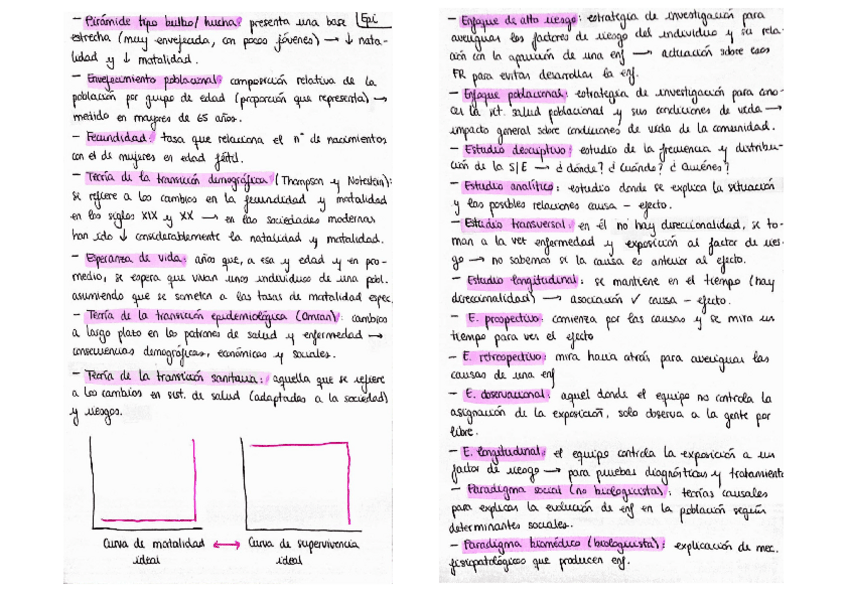 - Pirámide tipo bulbo/ hucha: presenta una base Epi
estrecha (muy envejecida, con pocos jóvenes) → ↓ nata-
lidad y ↓ mortalidad.
- Envejecimiento poblacional: composición relativa de la
población por grupo de edad (proporción que representa) →
medido en mayores de 65 años.
- Fecundidad: tasa que relaciona el nº de nacimientos
con el de mujeres en edad fértil.
- Teoría de la transición demográfica (Thompson y Notestein):
se refiere a los cambios en la fecundidad y mortalidad
en los siglos XIX y XX → en las sociedades modernas
han ido ↓ considerablemente la natalidad y mortalidad.
- Esperanza de vida: años que, a esa y edad y en pro-
medio, se espera que vivan unos individuos de una pobl.
asumiendo que se someten a las tasas de mortalidad espec.
- Teoría de la transición epidemiológica (Omran): cambios
a largo plazo en los patrones de salud y enfermedad →
consecuencias demográficas, económicas y sociales.
- Teoría de la transición sanitaria: aquella que se refiere
a los cambios en sist. de salud (adaptados a la sociedad)
y riesgos.
Curva de mortalidad ↔ Curva de supervivencia
ideal ideal
- Enfoque de alto riesgo: estrategia de investigación para
averiguar los factores de riesgo del individuo y su rela-
ción con la aparición de una enf → actuación sobre esos
FR para evitar desarrollar la enf.
- Enfoque poblacional: estrategia de investigación para cono-
cer la sit. salud poblacional y sus condiciones de vida →
impacto general sobre condiciones de vida de la comunidad.
- Estudio descriptivo: estudio de la frecuencia y distribu-
ción de la S/E → ¿dónde? ¿Cuándo? ¿Quiénes?
- Estudio analítico: estudio donde se explica la situación
y las posibles relaciones causa - efecto.
- Estudio transversal: en él no hay direccionalidad, se to-
man a la vez enfermedad y exposición al factor de ries-
go → no sabemos si la causa es anterior al efecto.
- Estudio longitudinal: se mantiene en el tiempo (hay
direccionalidad) → asociación ✓ causa - efecto.
- E. prospectivo: comienza por las causas y se mira un
tiempo para ver el efecto
- E. retrospectivo: mira hacia atrás para averiguar las
causas de una enf
- E. observacional: aquel donde el equipo no controla la
asignación de la exposición, solo observa a la gente por
libre.
- E. longitudinal: el equipo controla la exposición a un
factor de riesgo → para pruebas diagnósticas y tratamiento
- Paradigma social (no biologicista): teorías causales
para explicar la evolución de enf en la población según
determinantes sociales.
- Paradigma biomédico (biologicista): explicación de mec.
fisiopatológicos que producen enf.